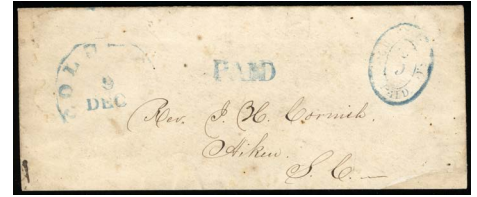 COL
9
DEC
PAID
5
Rev. J. H. Cornish.
Aiken.
S. C.